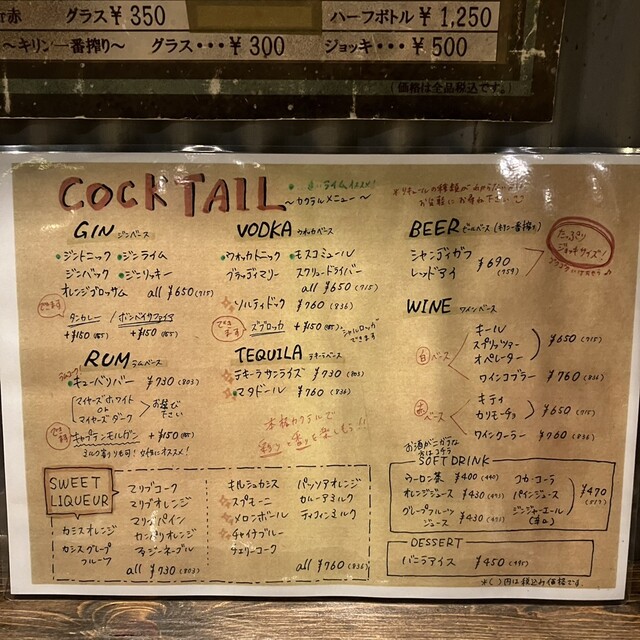 赤 グラス ¥350
ハーフボトル ¥1,250
～キリン一番搾り～ グラス・・・¥300
ジョッキ・・・¥500
(価格は全品税込です。)
COCKTAIL
～カクテルメニュー～
GIN ジンベース
・ジントニック ・ジンライム
ジンバック ・ジンリッキー
オレンジブロッサム all ¥650(715)
できます
タンカレー / ボンベイサファイア
+¥150(165) +¥150(165)
VODKA ウォッカベース
・ウォッカトニック ・モスコミュール
ブラッディマリー スクリュードライバー
all ¥650(715)
ソルティドック ¥760(836)
できます
ズブロッカ +¥150(165)
BEER ビールベース(キリン一番搾り)
シャンディガフ
レッドアイ
¥690
(759)
たっぷり
ジョッキサイズ!
WINE ワインベース
白ベース
キール
スプリッツァー
オペレーター
¥650(715)
ワインコブラー ¥760(836)
赤ベース
キティ
カリモーチョ
¥650(715)
ワインクーラー ¥760(836)
RUM ラムベース
・キューバリバー ¥730(803)
マイヤーズホワイト
or
マイヤーズダーク
お選び下さい
キャプテンモルガン +¥150(165)
ミルク割りも可! 女性にオススメ!
TEQUILA テキーラベース
テキーラサンライズ ¥730(803)
・マタドール ¥760(836)
本格カクテルで
彩りと香りを楽しもう!!
SWEET
LIQUEUR
カシスオレンジ
カシスグレープ
フルーツ
マリブコーク
マリブオレンジ
マリブパイン
カンパリオレンジ
ファジーネーブル
all ¥730(803)
キルシュカシス
スプモーニ
メロンボール
チャイナブルー
チェリーコーク
パッソアオレンジ
カルーアミルク
ティフィンミルク
all ¥760(836)
お酒がニガテな
方はコチラ
SOFT DRINK
ウーロン茶 ¥400(440)
オレンジジュース ¥430(473)
グレープフルーツ
ジュース ¥430(473)
コカ・コーラ
パインジュース
ジンジャーエール
(辛口)
¥470
(517)
DESSERT
バニラアイス ¥450(495)
※( )内は税込み価格です。